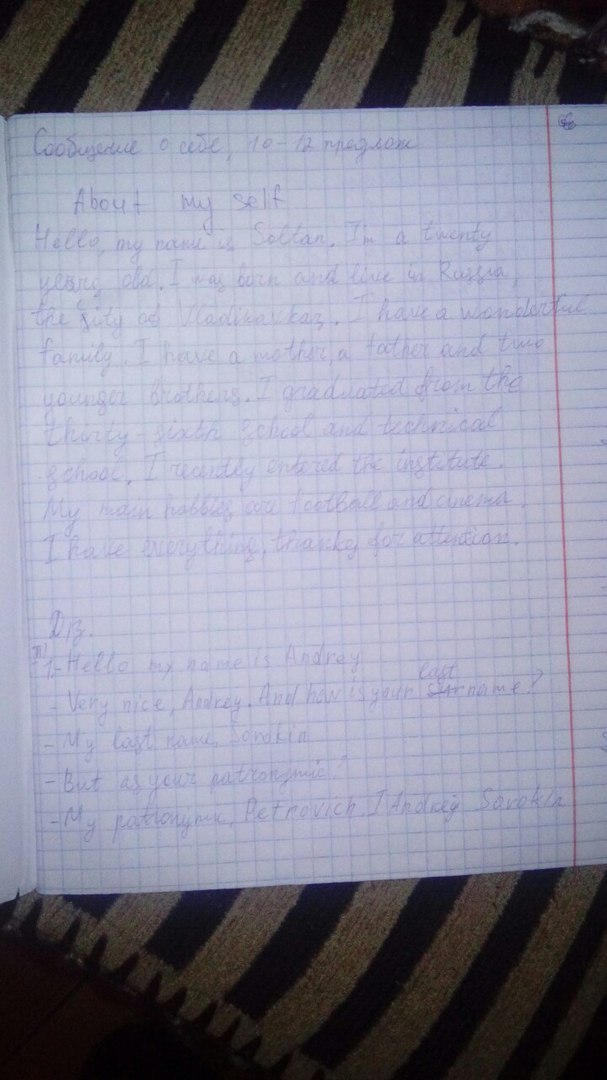 Сообщение о себе, 10-12 предлож
About my self
Hello, my name is Soltan. I'm a twenty
years old. I was born and live in Russia,
the city of Vladikavkaz. I have a wonderful
family. I have a mother, a father and two
younger brothers. I graduated from the
thirty-sixth school and technical
school. I recently entered the institute.
My main hobbies are football and cinema.
I have everything, thanks for attention.
Дз.
1.-Hello my name is Andrey
- Very nice, Andrey. And how is your last name?
- My last name, Sorokin
- But as your patronymic?
- My patronymic, Petrovich. I Andrey Sorokin